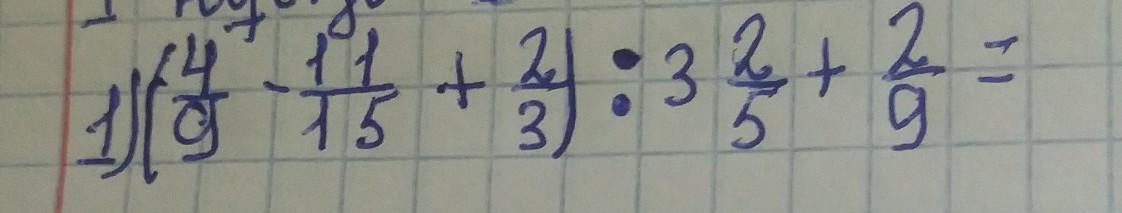 1) (4/9 - 11/15 + 2/3) : 3 2/5 + 2/9 =